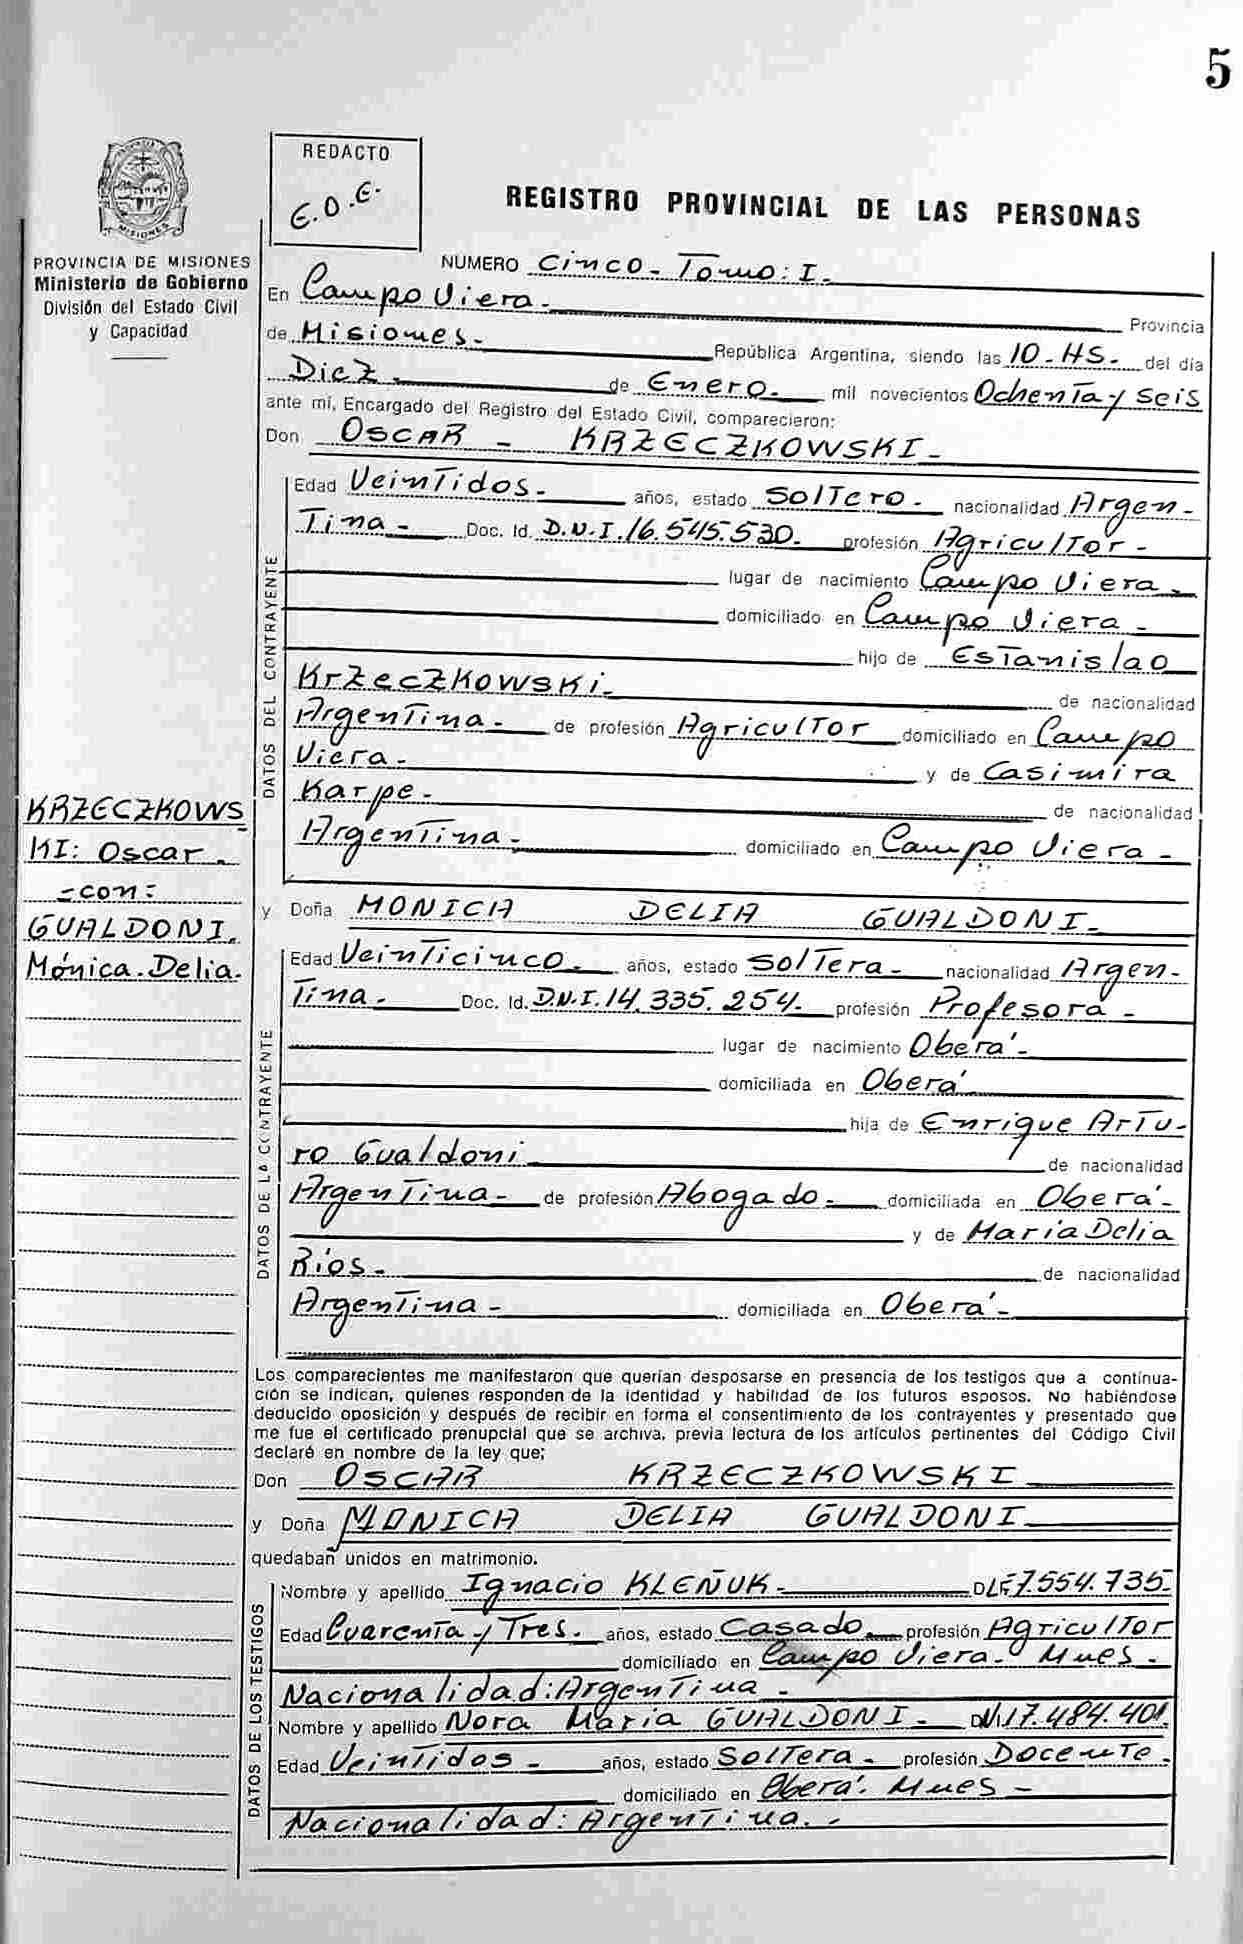 5
REDACTO
E.O.E.
REGISTRO PROVINCIAL DE LAS PERSONAS
MISIONES
PROVINCIA DE MISIONES
Ministerio de Gobierno
División del Estado Civil
y Capacidad
NUMERO Cinco - Tomo: I -
En Campo Viera - Provincia
de Misiones - República Argentina, siendo las 10 - HS - del día
Diez - de Enero - mil novecientos Ochenta y seis
ante mí, Encargado del Registro del Estado Civil, comparecieron:
Don OSCAR - KRZECZKOWSKI -
DATOS DEL CONTRAYENTE
Edad Veintidos - años, estado Soltero - nacionalidad Argen-
tina - Doc. Id. D.N.I. 16.545.530 - profesión Agricultor -
lugar de nacimiento Campo Viera -
domiciliado en Campo Viera -
hijo de Estanislao
Krzeczkowski - de nacionalidad
Argentina - de profesión Agricultor domiciliado en Campo
Viera - y de Casimira
Karpe - de nacionalidad
Argentina - domiciliado en Campo Viera -
KRZECZKOWS
KI: Oscar -
- con -
GUALDONI,
Mónica Delia.
y Doña MONICA DELIA GUALDONI -
DATOS DE LA CONTRAYENTE
Edad Veinticinco - años, estado Soltera - nacionalidad Argen-
tina - Doc. Id. D.N.I. 14.335.254 - profesión Profesora -
lugar de nacimiento Oberá -
domiciliada en Oberá
hija de Enrique Artu-
ro Gualdoni de nacionalidad
Argentina - de profesión Abogado - domiciliada en Oberá -
y de María Delia
Ríos - de nacionalidad
Argentina - domiciliada en Oberá -
Los comparecientes me manifestaron que querían desposarse en presencia de los testigos que a continua-
ción se indican, quienes responden de la identidad y habilidad de los futuros esposos. No habiéndose
deducido oposición y después de recibir en forma el consentimiento de los contrayentes y presentado que
me fue el certificado prenupcial que se archiva, previa lectura de los artículos pertinentes del Código Civil
declaré en nombre de la ley que;
Don OSCAR KRZECZKOWSKI
y Doña MONICA DELIA GUALDONI
quedaban unidos en matrimonio.
DATOS DE LOS TESTIGOS
Nombre y apellido Ignacio KLEÑUK - DLE 7.554.735
Edad Cuarenta y Tres - años, estado Casado - profesión Agricultor
domiciliado en Campo Viera - Mnes -
Nacionalidad: Argentina -
Nombre y apellido Nora María GUALDONI - DNI 17.484.401
Edad Veintidos - años, estado Soltera - profesión Docente -
domiciliado en Oberá - Mnes -
Nacionalidad: Argentina. -